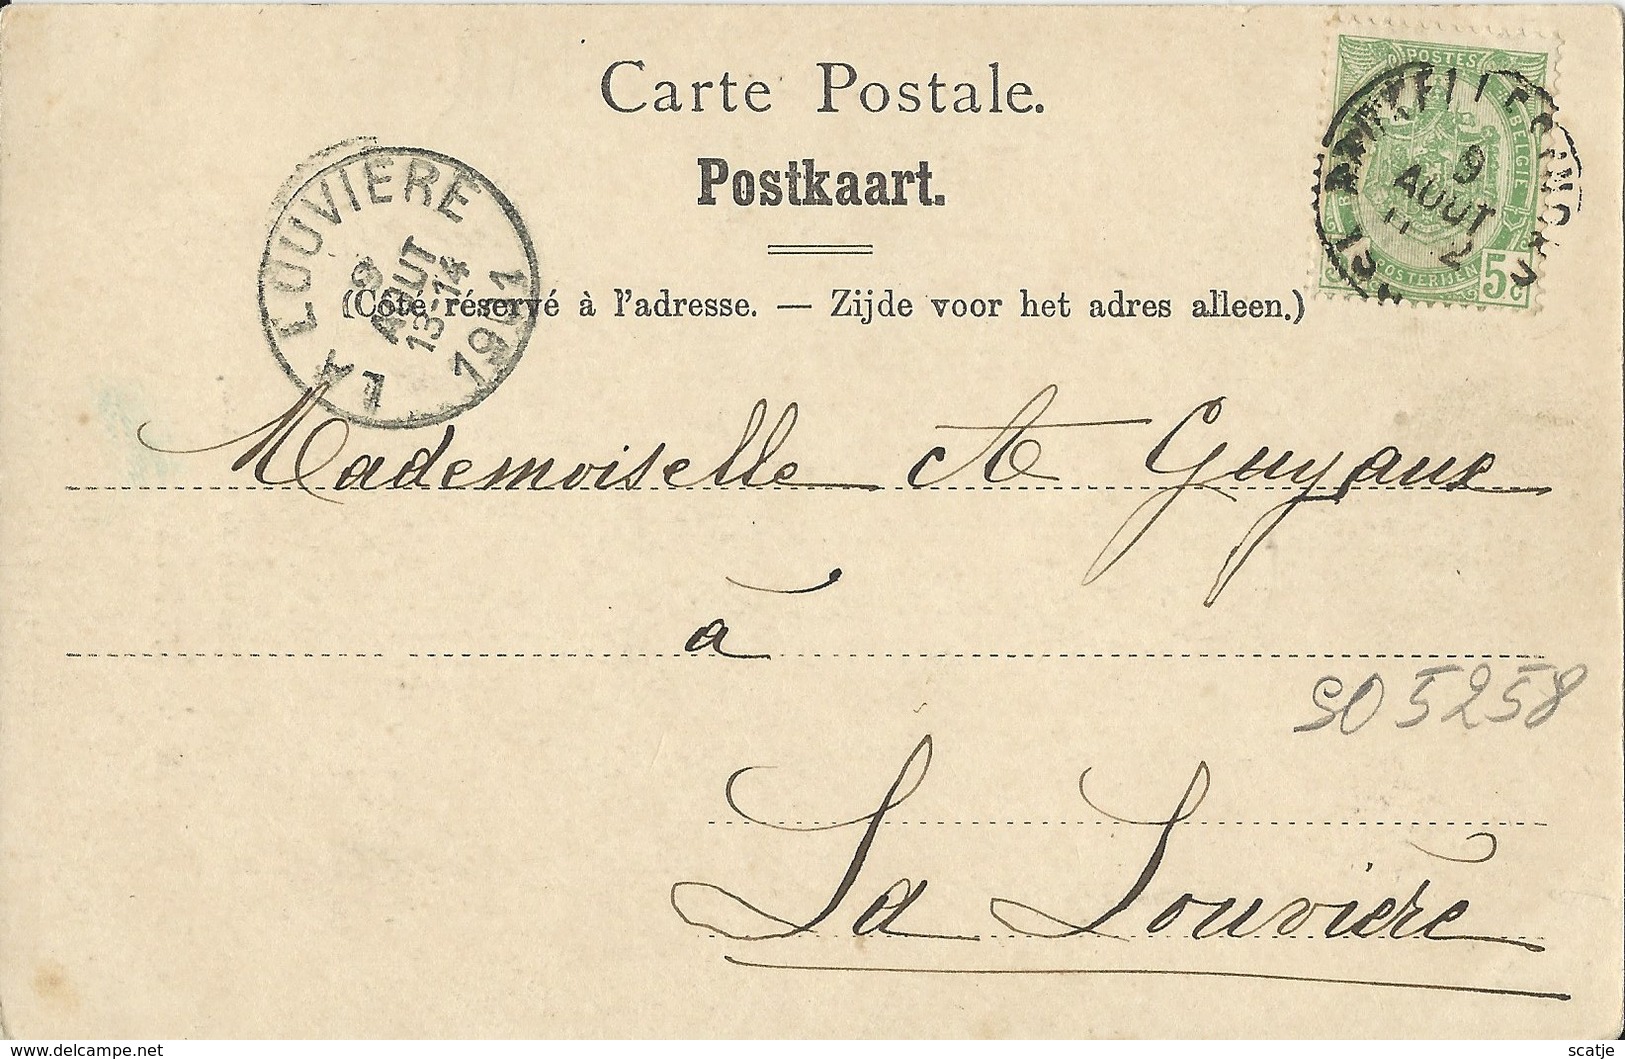 Carte Postale.
Postkaart.
(Côté réservé à l'adresse. — Zijde voor het adres alleen.)
POSTES
BELGIE
POSTERIJEN
5c
9
AOUT
LA LOUVIERE
9
AOUT
13-14
1901
Mademoiselle A Guyaux
à
La Louvière
SO 5258
delcampe.net
scatje